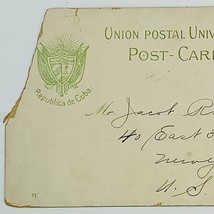 UNION POSTAL UNIV
POST-CAR
República de Cuba.
Mr. Jacob R
40 East
New
U. S.